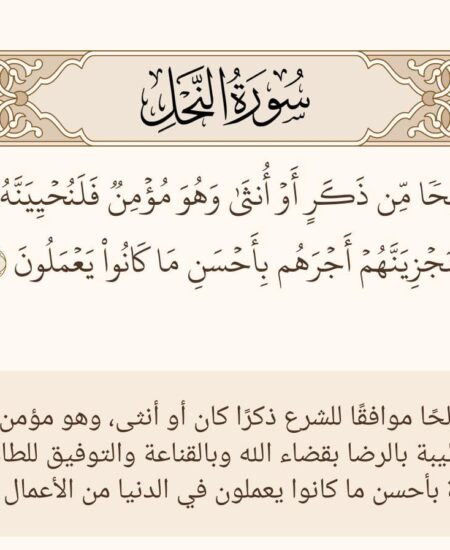 سُورَةُ النَّحْلِ
لِحٗا مِّن ذَكَرٍ أَوۡ أُنثَىٰ وَهُوَ مُؤۡمِنٞ فَلَنُحۡيِيَنَّهُۥ
نَجۡزِيَنَّهُمۡ أَجۡرَهُم بِأَحۡسَنِ مَا كَانُواْ يَعۡمَلُونَ
لحًا موافقًا للشرع ذكرًا كان أو أنثى، وهو مؤمن
طيبة بالرضا بقضاء الله وبالقناعة والتوفيق للطا
ة بأحسن ما كانوا يعملون في الدنيا من الأعمال